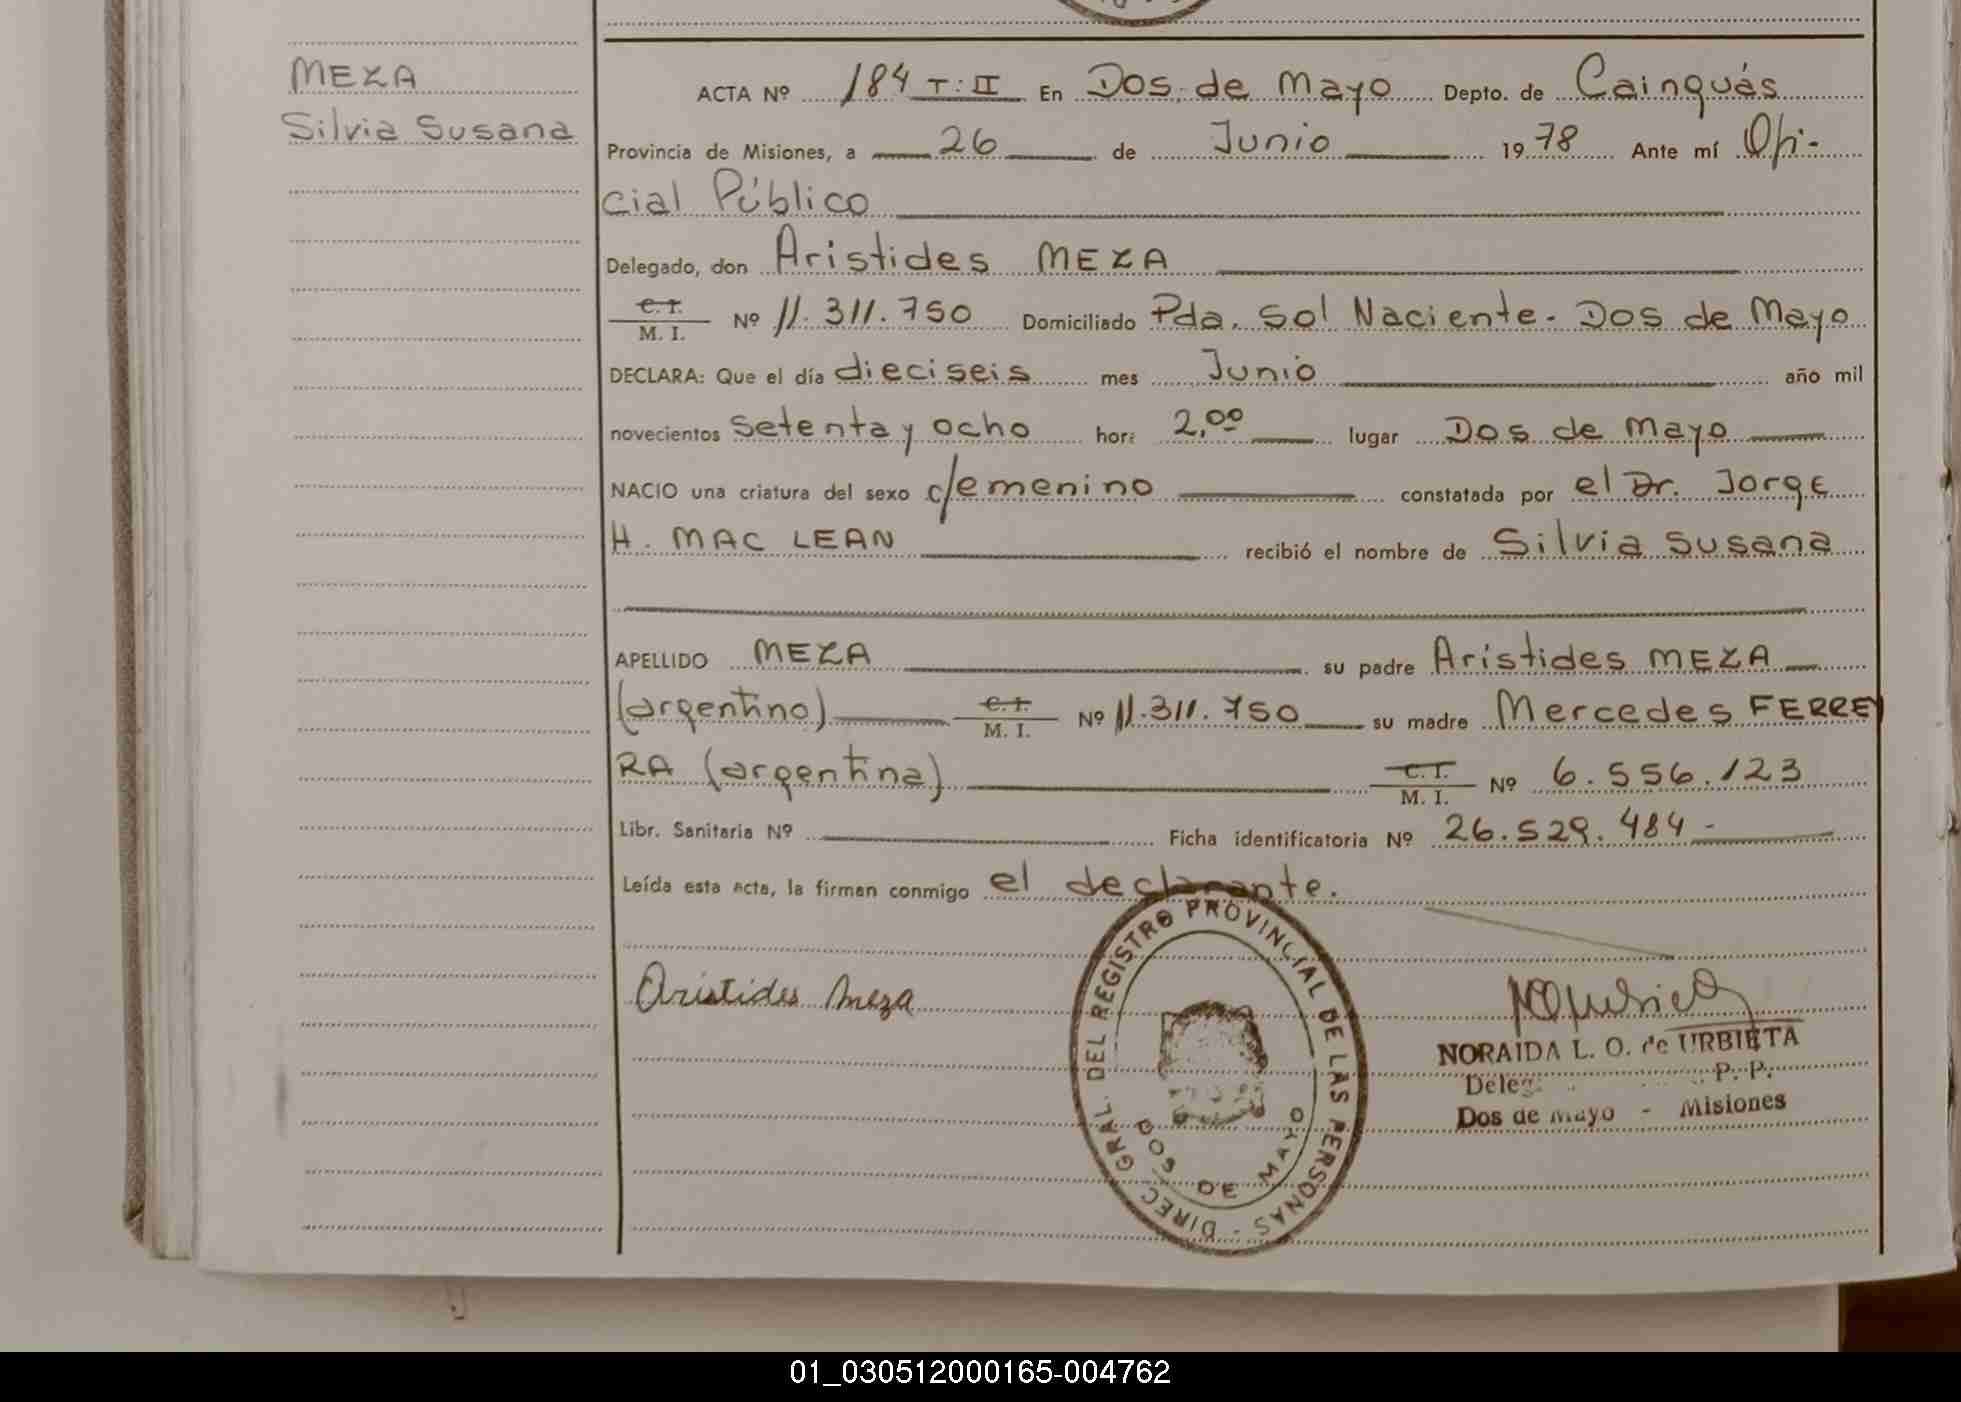 MEZA
Silvia Susana
ACTA Nº 184 T: II En Dos de Mayo Depto. de Cainguás
Provincia de Misiones, a 26 de Junio 1978 Ante mí Ofi-
cial Público
Delegado, don Aristides MEZA
C. I.
M. I. Nº 11.311.750 Domiciliado Pda. Sol Naciente - Dos de Mayo
DECLARA: Que el día dieciseis mes Junio año mil
novecientos setenta y ocho hora 2,00 lugar Dos de Mayo
NACIO una criatura del sexo femenino constatada por el Dr. Jorge
H. MAC LEAN recibió el nombre de Silvia Susana
APELLIDO MEZA su padre Aristides MEZA
(argentino) C. I.
M. I. Nº 11.311.750 su madre Mercedes FERREY
RA (argentina) C. I.
M. I. Nº 6.556.123
Libr. Sanitaria Nº Ficha identificatoria Nº 26.529.484-
Leída esta acta, la firman conmigo el declarante.
Aristides Meza
DIREC. GRAL. DEL REGISTRO PROVINCIAL DE LAS PERSONAS -
DOS DE MAYO
NORAIDA L. O. de URBIETA
P. P.
Dos de Mayo - Misiones
01_030512000165-004762